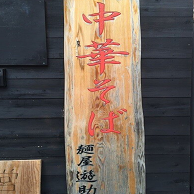 中華そば
麺屋遊助